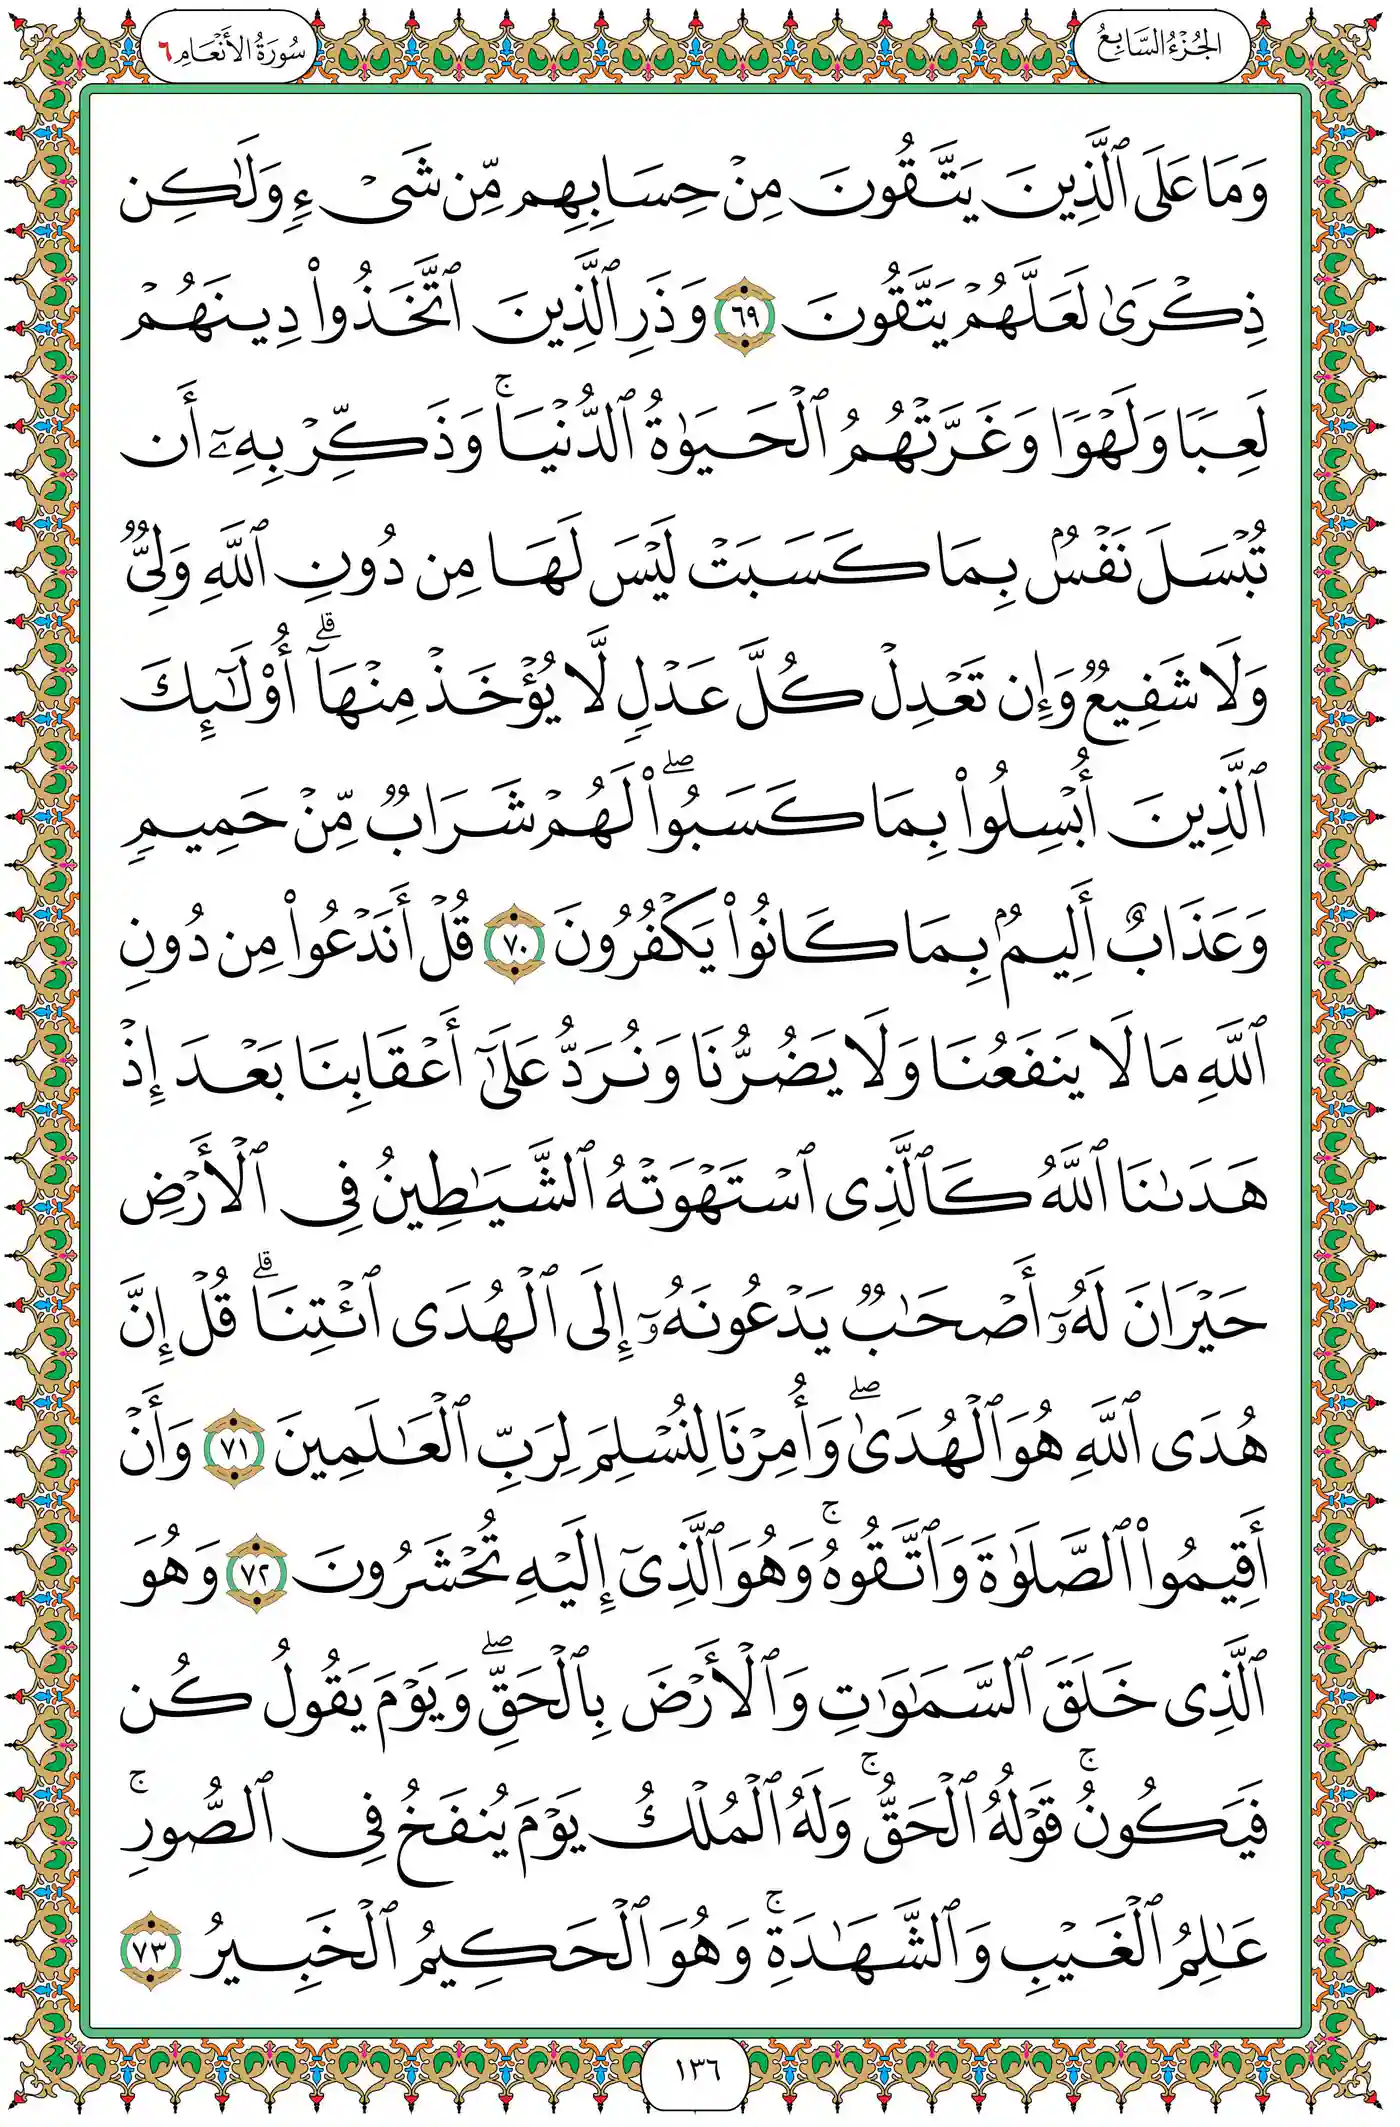 الجُزْءُ السَّابِعُ
سُورَةُ الأَنْعَامِ ٦
وَمَا عَلَى ٱلَّذِينَ يَتَّقُونَ مِنْ حِسَابِهِم مِّن شَىْءٍ وَلَٰكِن
ذِكْرَىٰ لَعَلَّهُمْ يَتَّقُونَ ٦٩ وَذَرِ ٱلَّذِينَ ٱتَّخَذُوا۟ دِينَهُمْ
لَعِبًا وَلَهْوًا وَغَرَّتْهُمُ ٱلْحَيَوٰةُ ٱلدُّنْيَا ۚ وَذَكِّرْ بِهِۦٓ أَن
تُبْسَلَ نَفْسٌۢ بِمَا كَسَبَتْ لَيْسَ لَهَا مِن دُونِ ٱللَّهِ وَلِىٌّ
وَلَا شَفِيعٌ وَإِن تَعْدِلْ كُلَّ عَدْلٍ لَّا يُؤْخَذْ مِنْهَآ ۗ أُو۟لَٰٓئِكَ
ٱلَّذِينَ أُبْسِلُوا۟ بِمَا كَسَبُوا۟ ۖ لَهُمْ شَرَابٌ مِّنْ حَمِيمٍ
وَعَذَابٌ أَلِيمٌۢ بِمَا كَانُوا۟ يَكْفُرُونَ ٧٠ قُلْ أَنَدْعُوا۟ مِن دُونِ
ٱللَّهِ مَا لَا يَنفَعُنَا وَلَا يَضُرُّنَا وَنُرَدُّ عَلَىٰٓ أَعْقَابِنَا بَعْدَ إِذْ
هَدَىٰنَا ٱللَّهُ كَٱلَّذِى ٱسْتَهْوَتْهُ ٱلشَّيَٰطِينُ فِى ٱلْأَرْضِ
حَيْرَانَ لَهُۥٓ أَصْحَٰبٌ يَدْعُونَهُۥٓ إِلَى ٱلْهُدَى ٱئْتِنَا ۗ قُلْ إِنَّ
هُدَى ٱللَّهِ هُوَ ٱلْهُدَىٰ ۖ وَأُمِرْنَا لِنُسْلِمَ لِرَبِّ ٱلْعَٰلَمِينَ ٧١ وَأَنْ
أَقِيمُوا۟ ٱلصَّلَوٰةَ وَٱتَّقُوهُ ۚ وَهُوَ ٱلَّذِىٓ إِلَيْهِ تُحْشَرُونَ ٧٢ وَهُوَ
ٱلَّذِى خَلَقَ ٱلسَّمَٰوَٰتِ وَٱلْأَرْضَ بِٱلْحَقِّ ۖ وَيَوْمَ يَقُولُ كُن
فَيَكُونُ ۚ قَوْلُهُ ٱلْحَقُّ ۚ وَلَهُ ٱلْمُلْكُ يَوْمَ يُنفَخُ فِى ٱلصُّورِ ۚ
عَٰلِمُ ٱلْغَيْبِ وَٱلشَّهَٰدَةِ ۚ وَهُوَ ٱلْحَكِيمُ ٱلْخَبِيرُ ٧٣
١٣٦